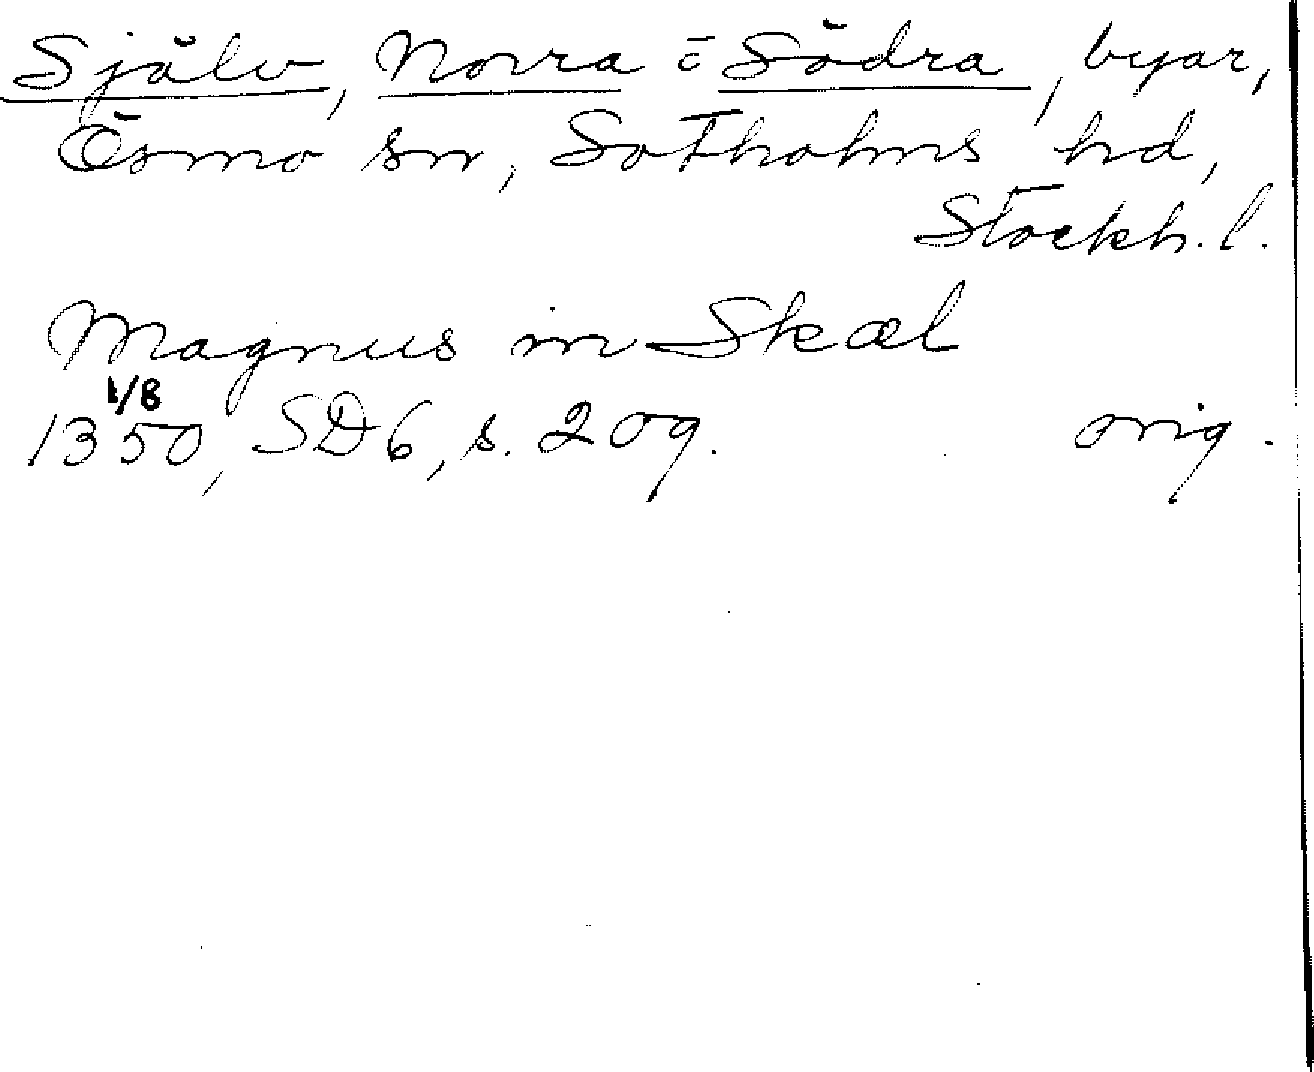 Själv, Norra = Södra, byar,
Ösmo sn, Sotholms hd,
Stockh. l.
Magnus in Skæl
1/8
1350, SD6, s. 209. orig.